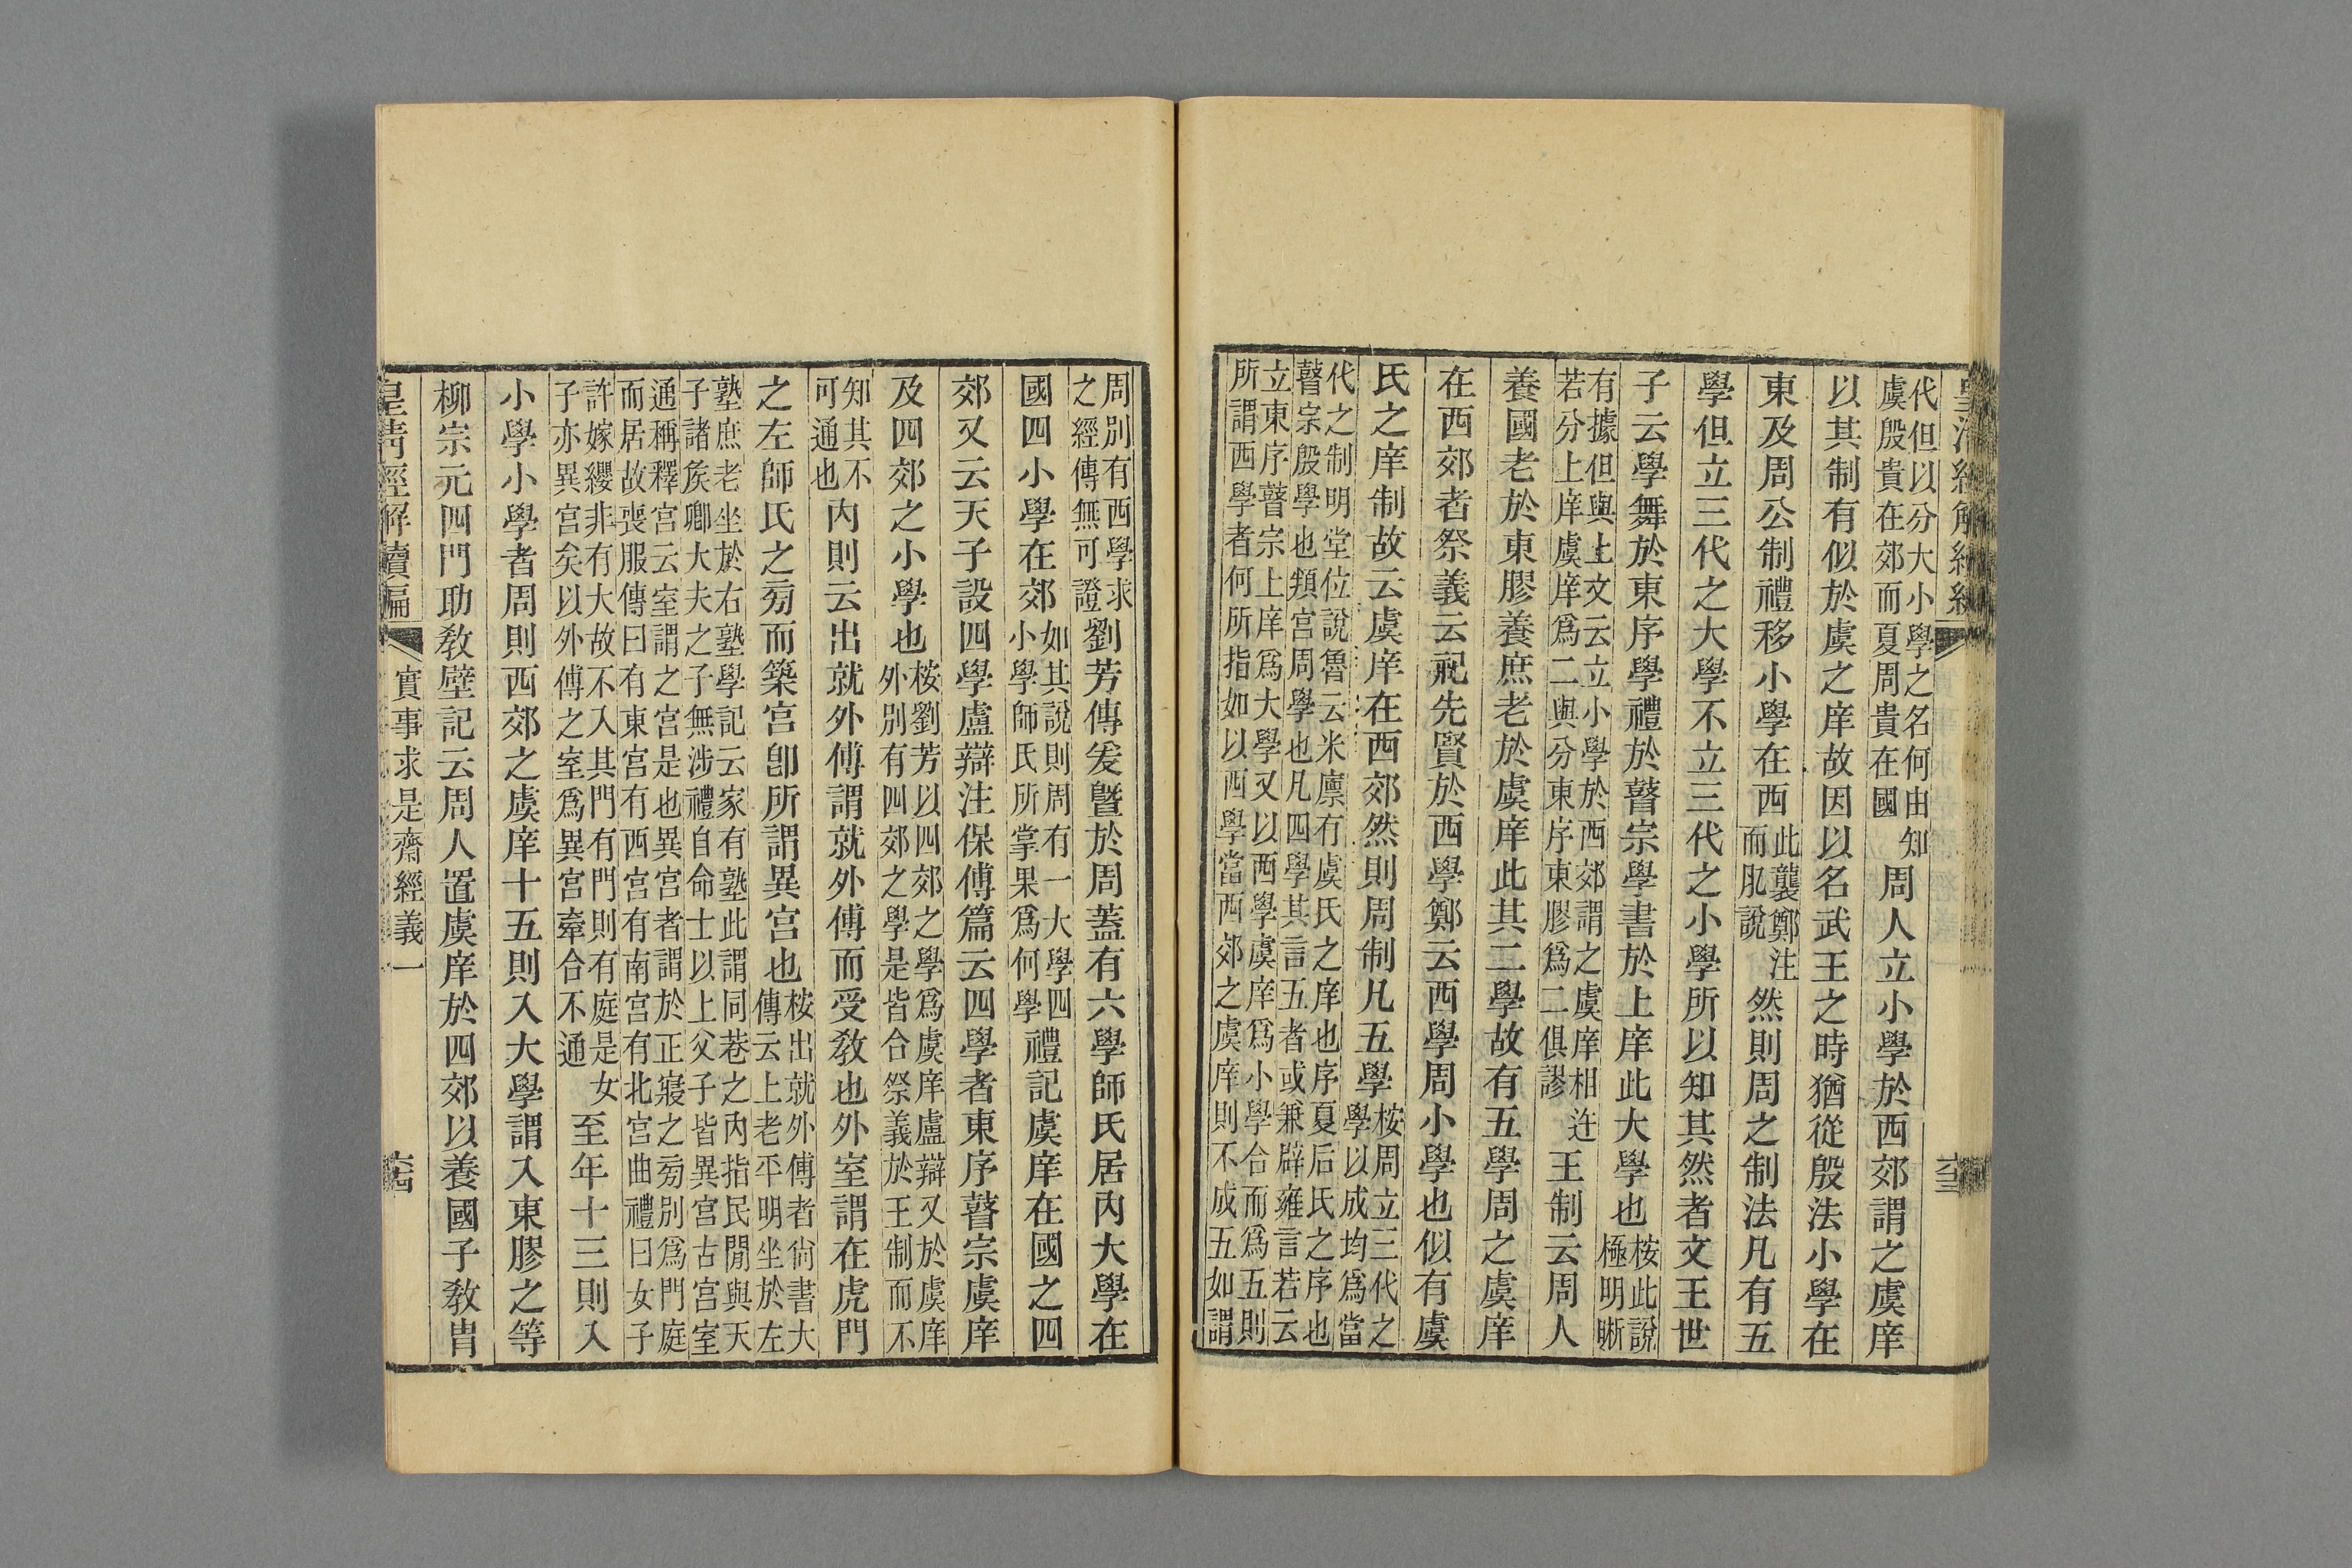 皇清經解續編
代但以分大小學之名何由知
虞殷貴在郊而夏周貴在國
周人立小學於西郊謂之虞庠
以其制有似於虞之庠故因以名武王之時猶從殷法小學在
東及周公制禮移小學在西
此襲鄭注
而肊說
然則周之制法凡有五
學但立三代之大學不立三代之小學所以知其然者文王世
子云學舞於東序學禮於瞽宗學書於上庠此大學也
桉此說
極明晰
有據但與上文云立小學於西郊謂之虞庠相迕
若分上庠虞庠爲二與分東序東膠爲二俱謬
王制云周人
養國老於東膠養庶老於虞庠此其二學故有五學周之虞庠
在西郊者祭義云祀先賢於西學鄭云西學周小學也似有虞
氏之庠制故云虞庠在西郊然則周制凡五學
桉周立三代之
學以成均爲當
代之制明堂位說魯云米廪有虞氏之庠也序夏后氏之序也
瞽宗殷學也頖宫周學也凡四學其言五者或兼辟雍言若云
立東序瞽宗上庠爲大學又以西學虞庠爲小學合而爲五則
所謂西學者何所指如以西學當西郊之虞庠則不成五如謂
周別有西學求
之經傳無可證
劉芳傳爰曁於周蓋有六學師氏居内大學在
國四小學在郊
如其說則周有一大學四
小學師氏所掌果爲何學
禮記虞庠在國之四
郊又云天子設四學盧辯注保傅篇云四學者東序瞽宗虞庠
及四郊之小學也
桉劉芳以四郊之學爲虞庠盧辯又於虞庠
外別有四郊之學是皆合祭義於王制而不
知其不
可通也
内則云出就外傅謂就外傅而受敎也外室謂在虎門
之左師氏之㫄而築宫卽所謂異宫也
桉出就外傅者尙書大
傳云上老平明坐於左
塾庶老坐於右塾學記云家有塾此謂同巷之内指民閒與天
子諸矦卿大夫之子無涉禮自命士以上父子皆異宫古宫室
通稱釋宫云室謂之宫是也異宫者謂於正寢之㫄別爲門庭
而居故喪服傳曰有東宫有西宫有南宫有北宫曲禮曰女子
許嫁纓非有大故不入其門有門則有庭是女
子亦異宫矣以外傅之室爲異宫牽合不通
至年十三則入
小學小學者周則西郊之虞庠十五則入大學謂入東膠之等
柳宗元四門助敎壁記云周人置虞庠於四郊以養國子敎胄
皇清經解續編
實事求是齋經義一